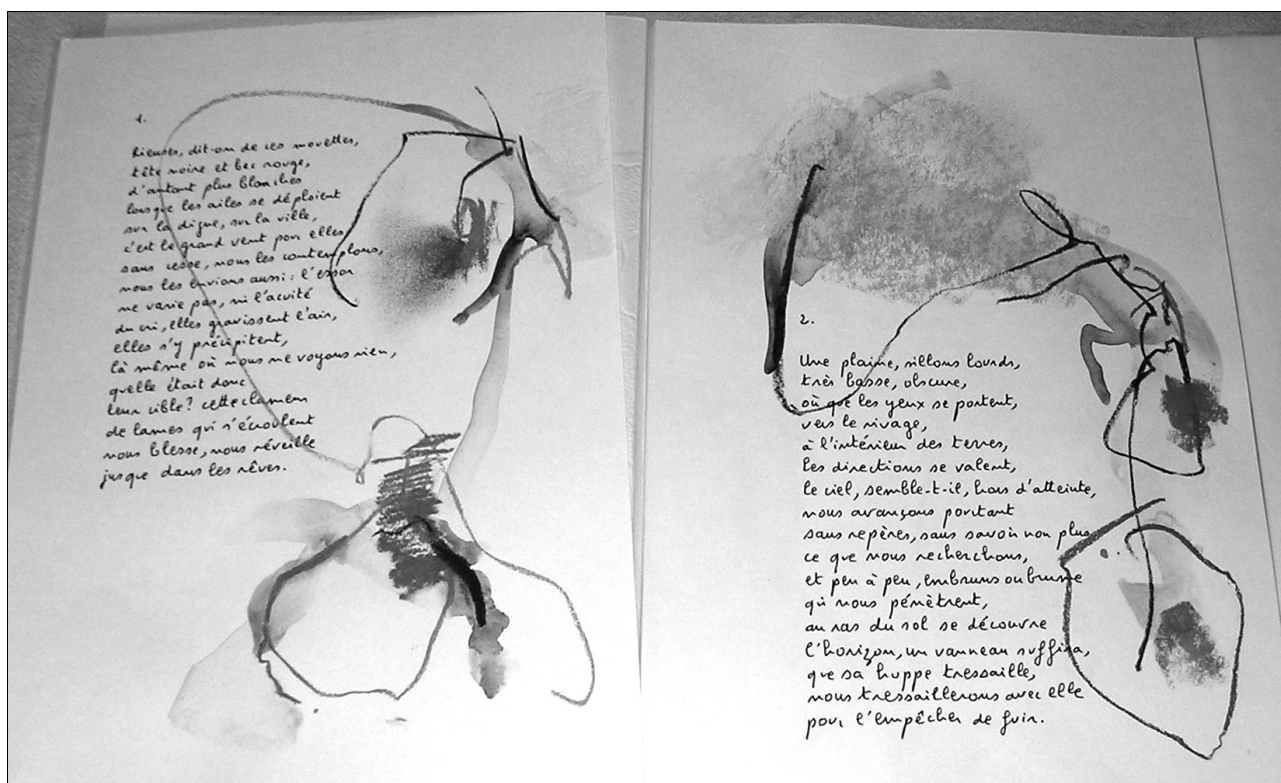 1.
Rieuses, dit-on de ces mouettes,
tête noire et bec rouge,
d'autant plus blanches
lorsque les ailes se déploient
sur la digue, sur la ville,
c'est le grand vent pour elles,
sans cesse, nous les contemplons,
nous les envions aussi : l'essor
ne varie pas, ni l'acuité
du cri, elles gravissent l'air,
elles s'y précipitent,
là même où nous ne voyons rien,
quelle était donc
leur cible ? cette clameur
de lames qui s'écroulent
nous blesse, nous réveille
jusque dans les rêves.
2.
Une plaine, sillons lourds,
très basse, obscure,
où que les yeux se portent,
vers le rivage,
à l'intérieur des terres,
les directions se valent,
le ciel, semble-t-il, hors d'atteinte,
nous avançons pourtant
sans repères, sans savoir non plus
ce que nous recherchons,
et peu à peu, embruns ou brume
qui nous pénètrent,
au ras du sol se découvre
l'horizon, un vanneau suffira,
que sa huppe tressaille,
nous tressaillerons avec elle
pour l'empêcher de fuir.